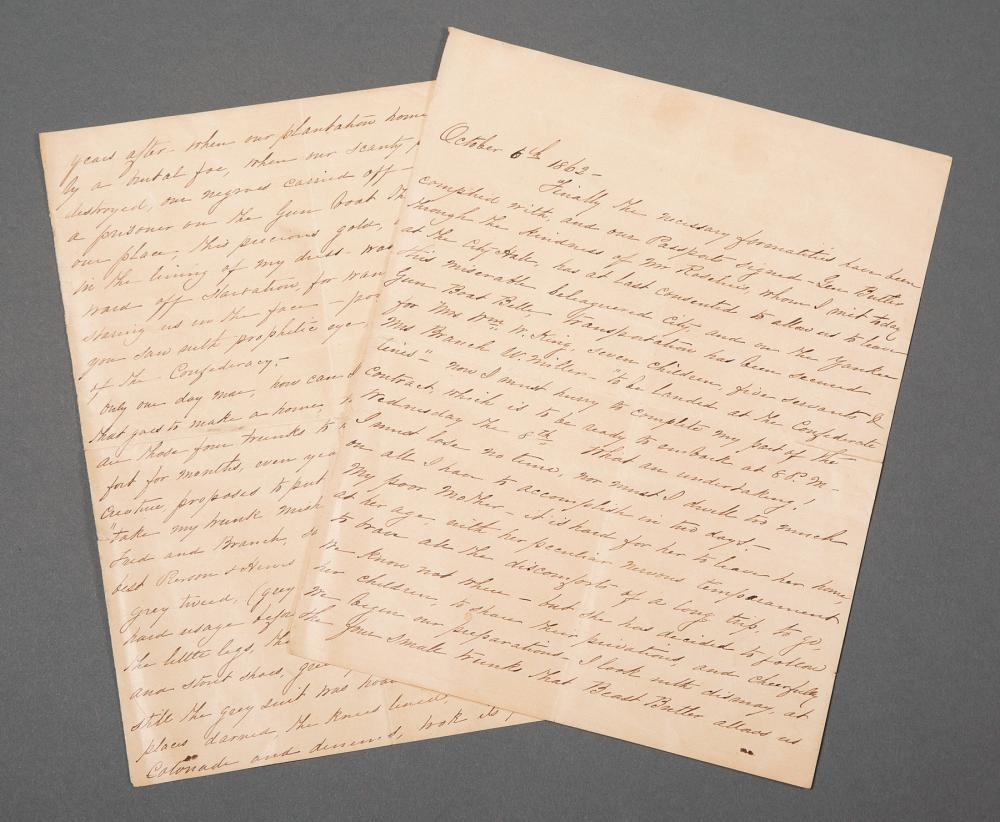 October 6th 1862-
Finally the necessary formalities have been
complied with and our Passports signed - Gen Butler
through the kindness of Mr Roselius, whom I met today
at the City Hall, has at last consented to allow us to leave
this miserable beleaguered city, and on the Yankee
Gun Boat Belle, Transportation has been secured
for Mrs Wm. W. King, seven Children, five servants &
Mrs Branch W. Miller - "to be landed at the Confederate
lines" - now I must hurry to complete my part of the
Contract, which is to be ready to embark at 8 P.M-
Wednesday the 8th What an undertaking.
I must lose no time, nor must I dwell too much
on all I have to accomplish in two days.-
My poor Mother - it is hard for her to leave her home,
at her age, with her peculiar nervous temperament
to brave all the discomforts of a long trip, to go,
we know not where - but she has decided to follow
her children, to share their privations, and cheerfully
we begin our preparations. I look with dismay, at
the four small trunks that Beast Butler allows us
years after when our plantation home
by a brutal foe, when our scanty
destroyed, our negroes carried off -
a prisoner on the Gun boat
our place, this precious gold,
in the lining of my dress - was
ward off starvation, for wan
staring us in the face -
you saw with prophetic eye
of the Confederacy.-
Only one day more, how can I
that goes to make a home,
all those four trunks to
fort for months, even yea
Creature proposes to put
"take my trunk Mish
Fred and Branch, so
best Pierson & Hews
grey tweed, (grey
hard usage befo
the little legs, th
and stout shoes, grey
still the grey suit was
places darned, the knees lined,
Cotonade and denims, took its